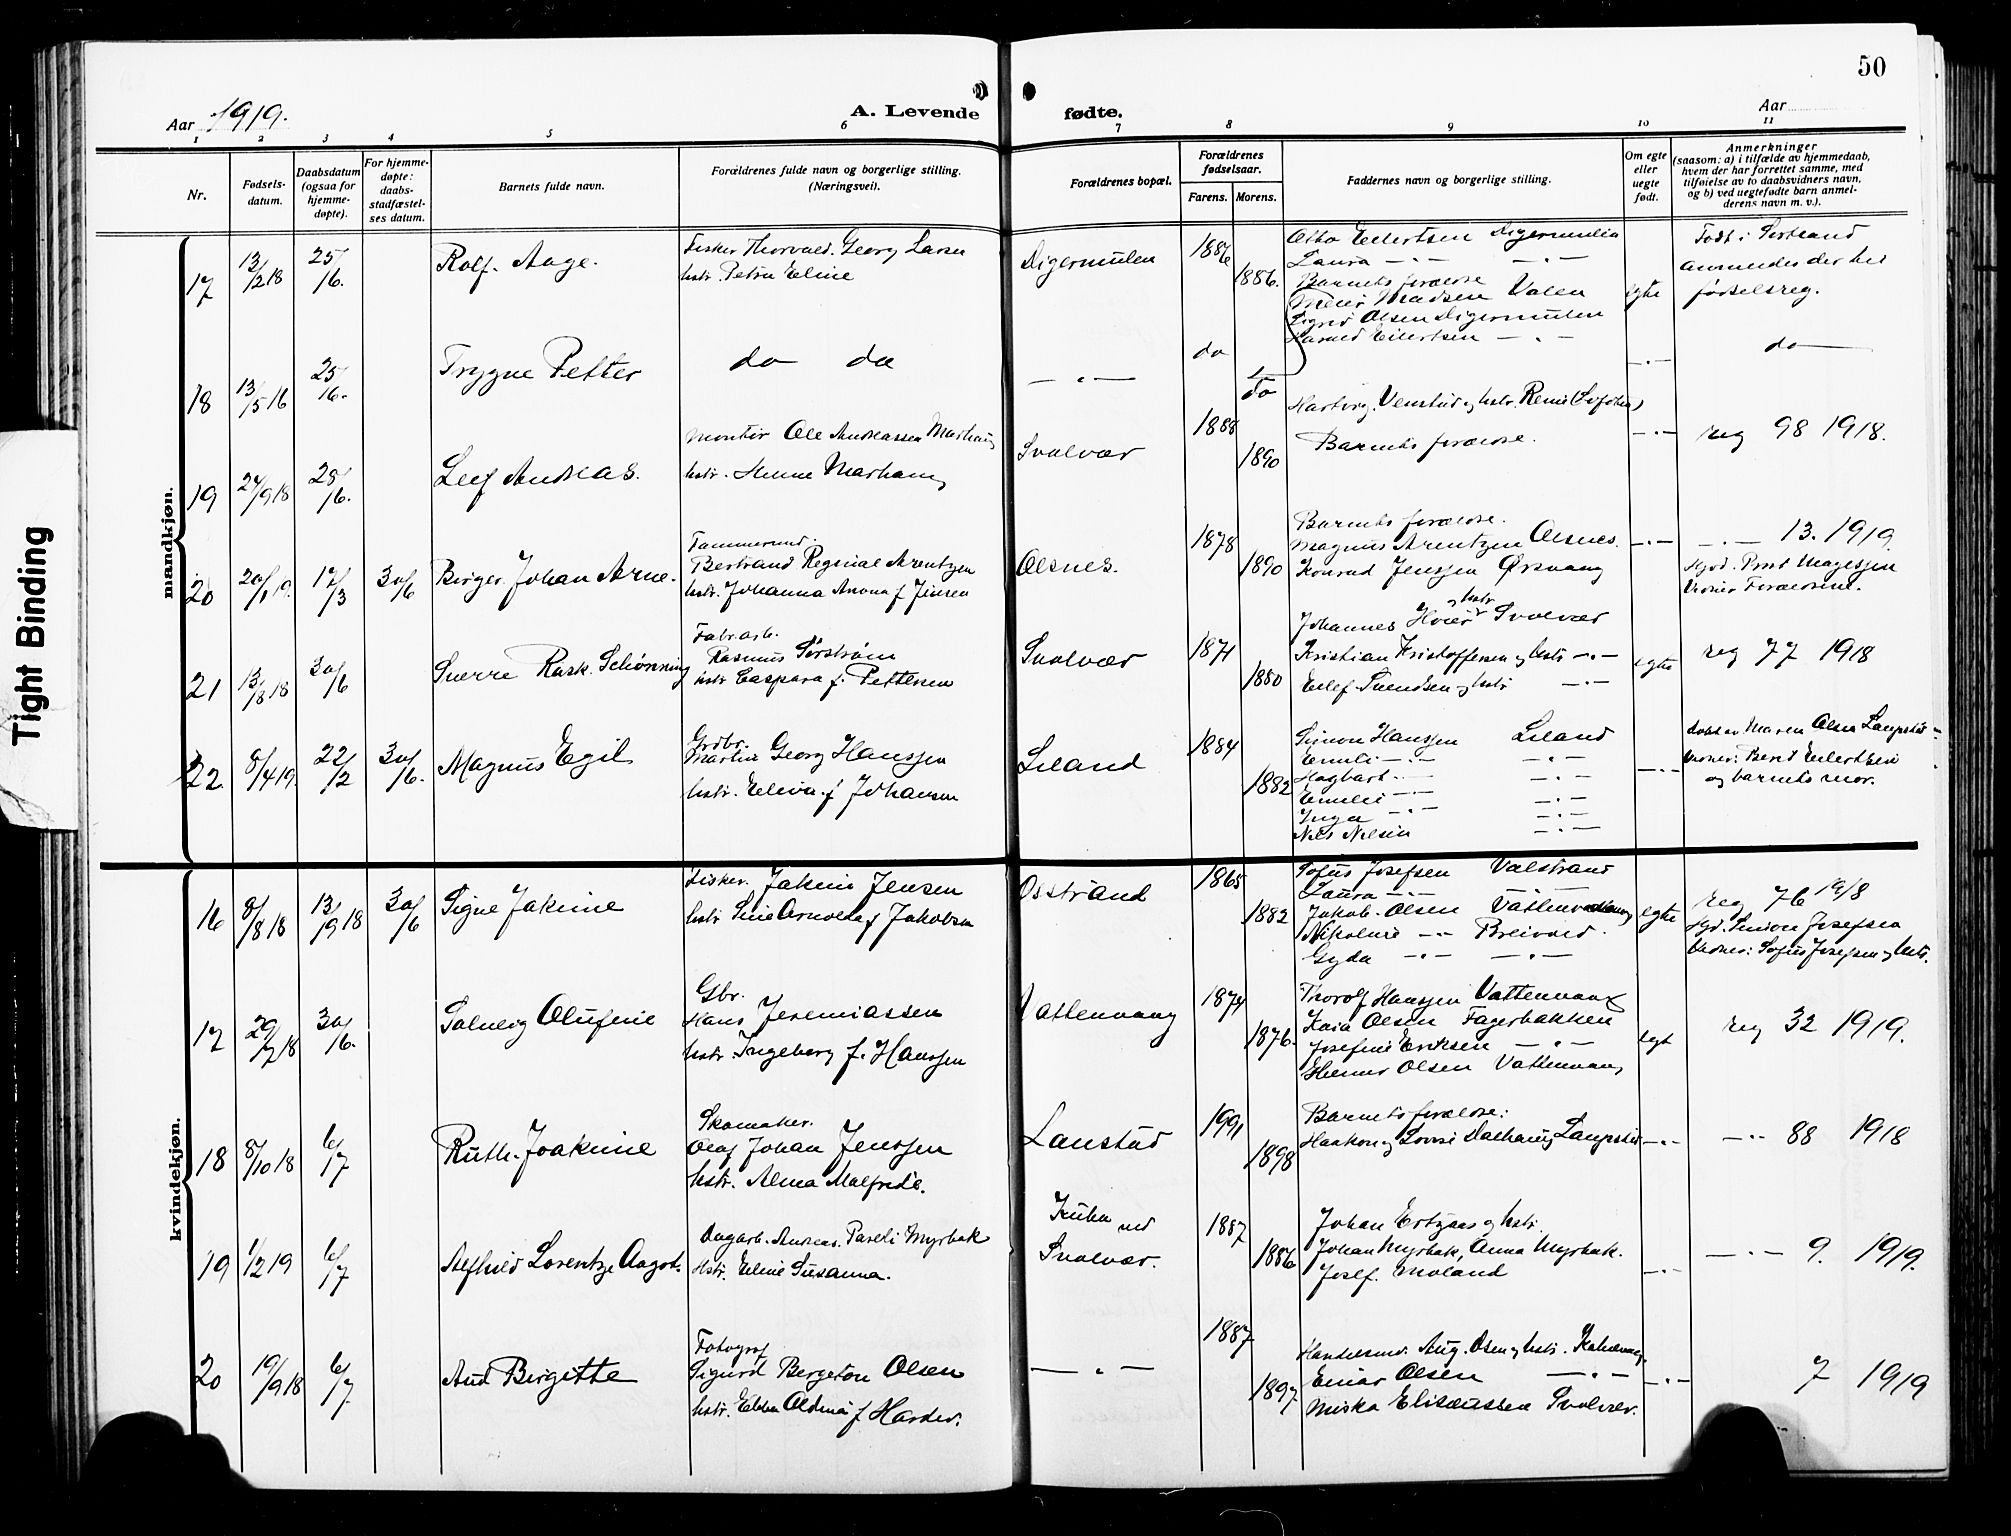 50
Aar 1919.
A. Levende fødte.
Aar
1 2 3 4 5 6 7 8 9 10 11
Nr.
Fødsels-
datum.
Daabsdatum
(ogsaa for
hjemme-
døpte).
For hjemme-
døpte:
daabs-
stadfæstel-
ses datum.
Barnets fulde navn.
Forældrenes fulde navn og borgerlige stilling.
(Næringsvei).
Forældrenes bopæl.
Forældrenes
fødselsaar.
Farens. Morens.
Faddernes navn og borgerlige stilling.
Om egte
eller
uegte
født.
Anmerkninger
(saasom: a) i tilfælde av hjemmedaab,
hvem der har forrettet samme, med
tilføielse av to daabsvidners navn,
og b) ved uegtefødte barn anmel-
derens navn m. v.).
mandkjøn.
17
13/2 18
25/6.
Rolf. Aage.
Fisker Thorvald. Georg Larsen
hstr. Petra Eline
Digermulen
1886
1886.
Otto Eilertsen Digermulen
Laura -"- -"-
Barnets forældre
Madsen Valen
Sigrid Olsen Digermulen
Harald Eilertsen -"-
egte
Født i Sortland
anmeldes der hel
fødselsreg.
18
13/5 16
25/6.
Trygve Petter
do do
-"-
do
do
-"-
do
19
24/9 18
25/6.
Leif Andreas.
Montør Ole Andreassen Marhaug
hstr. Henne Marhaug
Svolvær
1888
1890
Hartvig. Venstad og hstr.
Barnets forældre.
-"-
reg 98 1918.
20
20/1 19.
17/3
30/6
Birger Johan Arne.
Tømmermd.
Bertrand Reginal Arentzen
hstr. Johanna Anona f. Jensen
Olsnes.
1878
1890
Barnets forældre.
Magnus Arentzen Olsnes.
Konrad Jenssen Ørsvaag
-"-
-"- 13. 1919.
Hjd. Prest
Vidner Forældrene.
21
13/8 18
30/6
Sverre Rask. Schønning
Fabrarb.
Rasmus Sørstrøm
hstr Caspara f. Pettersen
Svolvær
1871
1880
Johannes Høier og hstr Svolvær
Kristian Kristoffersen og hstr -"-
Eilef Svendsen og hstr -"-
egte
reg 77 1918
22.
8/4 19.
22/2
30/6.
Magnus Egil
Grdbr.
Martin Georg Hanssen
hstr. Eliva f. Johansen
Liland
1884
1882
Simon Hanssen Liland
Emeli -"- -"-
Hagbart -"- -"-
Emilie -"- -"-
Inga -"- -"-
Nils Nilsen -"-
-"-
Maren Olsen Laupstad
Vidner: Berit Eilertsen
og barnets mor.
kvindekjøn.
16
8/8 18
13/9 18
30/6
Signe Jakime
Fisker. Jakim Jensen
hstr Sine Arnolda f Jakobsen
Osstrand
1865
1882
Sofus Josefsen Valstrand
Laura -"-
Jakob. Olsen
Nikoline -"- Breivand.
Gyda -"- -"-
egte
reg 76 19/8
Hjd. Simon Josefsen
Vidner: Sofus Josefsen og hstr.
17
29/12 18
30/6.
Solveig Olufine
Gbr.
Hans Jeremiassen
hstr. Ingeborg f. Hanssen
Vattervaag
1874
1876.
Thorolf Hanssen Vattervaag
Kaia Olsen Fagerbakken
Josefine Eriksen -"-
Helmer Olsen Vattervaag
egt
reg 32 1919.
18
8/10 18
6/7
Ruth. Joakime
Skomaker.
Olaf Johan Jenssen
hstr. Alma Malfrede.
Laustad
1991
1898
Barnets forældre:
Haakon og Lovise Dalhaug Laupstad
-"-
-"- 88 1918
19
1/2 19
6/7
Alfhild Lorentze Aagot.
Dagarb. Andreas. Pareli Myrbak
Hstr. Eline Susanna.
Kuba ved
Svolvær.
1887
1886
Johan Ertzaas og hstr.
Johan Myrbak, Anna Myrbak.
Josef. Moland
-"-
-"- 9. 1919.
20
19/9 18
6/7
Aud Birgitte
Fotograf
Sigurd Bergeton Olsen
hstr. Ebba Aldena f Harder.
-"-
1887
1897
Handelsmd. Aug. Olsen og hstr. Kabelvaag.
Einar Olsen -"-
Miska Elisæussen Svolvær.
-"-
7 1919
Tight Binding